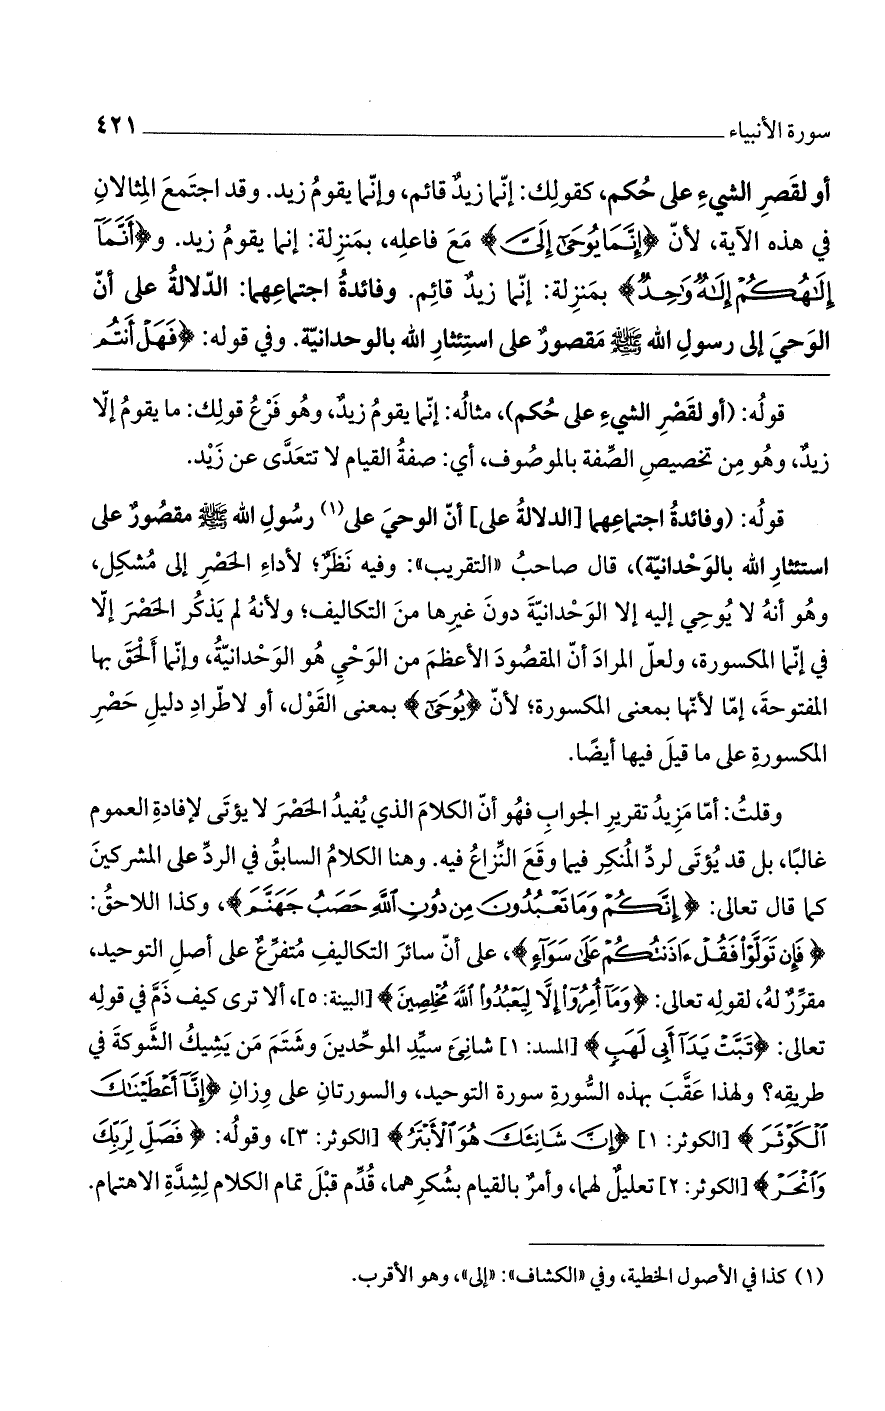 سورة الأنبياء ٤٢١
أو لقَصرِ الشيءِ على حُكم، كقولِك: إنّما زيدٌ قائم، وإنّما يقومُ زيد. وقد اجتَمعَ المِثالانِ
في هذه الآية، لأنّ ﴿إِنَّمَا يُوحَىٰٓ إِلَيَّ﴾ مَعَ فاعلِه، بمَنزِلة: إنما يقومُ زيد. و﴿أَنَّمَآ
إِلَٰهُكُمْ إِلَٰهٌ وَٰحِدٌ﴾ بمَنزِلة: إنّما زيدٌ قائِم. وفائدةُ اجتماعِهما: الدّلالةُ على أنّ
الوَحيَ إلى رسولِ الله ﷺ مَقصورٌ على استِئثارِ الله بالوحدانيّة. وفي قوله: ﴿فَهَلْ أَنتُم
قولُه: (أو لقَصْرِ الشيءِ على حُكم)، مثالُه: إنّما يقومُ زيدٌ، وهُو فَرْعُ قولِك: ما يقومُ إلّا
زيدٌ، وهُو مِن تخصيصِ الصِّفة بالموصُوف، أي: صفةُ القيام لا تتعَدَّى عن زَيْد.
قولُه: (وفائدةُ اجتماعِهما [الدلالةُ على] أنّ الوحيَ على(١) رسُولِ الله ﷺ مقصُورٌ على
استئثارِ الله بالوَحْدانيّة)، قال صاحبُ «التقريب»: وفيه نَظَرٌ؛ لأداءِ الحَصْرِ إلى مُشكِل،
وهُو أنهُ لا يُوحِي إليه إلا الوَحْدانيّةَ دونَ غيرِها منَ التكاليف؛ ولأنهُ لم يَذكُر الحَصْرَ إلّا
في إنّما المكسورة، ولعلّ المرادَ أنّ المقصُودَ الأعظمَ من الوَحْيِ هُو الوَحْدانيّةُ، وإنّما أَلْحَقَ بها
المفتوحةَ، إمّا لأنّها بمعنى المكسورة؛ لأنّ ﴿يُوحَىٰٓ﴾ بمعنى القَوْل، أو لاطّرادِ دليلِ حَصْرِ
المكسورةِ على ما قيلَ فيها أيضًا.
وقلتُ: أمّا مَزيدُ تقريرِ الجوابِ فهُو أنّ الكلامَ الذي يُفيدُ الحَصْرَ لا يؤتَى لإفادةِ العموم
غالبًا، بل قد يُؤتَى لردِّ المُنكِر فيما وقَعَ النِّزاعُ فيه. وهنا الكلامُ السابقُ في الردِّ على المشركينَ
كما قال تعالى: ﴿إِنَّكُمْ وَمَا تَعْبُدُونَ مِن دُونِ ٱللَّهِ حَصَبُ جَهَنَّمَ﴾، وكذا اللاحقُ:
﴿فَإِن تَوَلَّوْا۟ فَقُلْ ءَاذَنتُكُمْ عَلَىٰ سَوَآءٍ﴾، على أنّ سائرَ التكاليفِ مُتفرِّعٌ على أصلِ التوحيد،
مقرِّرٌ لهُ، لقولِه تعالى: ﴿وَمَآ أُمِرُوٓا۟ إِلَّا لِيَعْبُدُوا۟ ٱللَّهَ مُخْلِصِينَ﴾ [البينة: ٥]، ألا ترى كيف ذَمَّ في قولِه
تعالى: ﴿تَبَّتْ يَدَآ أَبِى لَهَبٍ﴾ [المسد: ١] شانِئَ سيِّدِ الموحِّدينَ وشَتَمَ مَن يَشِيكُ الشَّوكةَ في
طريقِه؟ ولهذا عَقَّبَ بهذه السُّورةِ سورةَ التوحيد، والسورتانِ على وِزانِ ﴿إِنَّآ أَعْطَيْنَٰكَ
ٱلْكَوْثَرَ﴾ [الكوثر: ١] ﴿إِنَّ شَانِئَكَ هُوَ ٱلْأَبْتَرُ﴾ [الكوثر: ٣]، وقولُه: ﴿فَصَلِّ لِرَبِّكَ
وَٱنْحَرْ﴾ [الكوثر: ٢] تعليلٌ لهما، وأمرٌ بالقيام بشُكرِهما، قُدِّم قبْلَ تمام الكلام لِشِدَّةِ الاهتمام.
(١) كذا في الأصول الخطية، وفي «الكشاف»: «إلى»، وهو الأقرب.